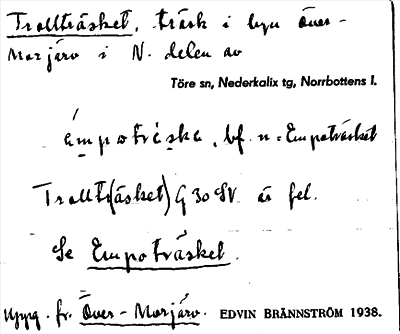 Trollträsket, träsk i byn Över-
Morjärv i N. delen av
Töre sn, Nederkalix tg, Norrbottens l.
empoträske, bf. n = Empoträsket
Trolltr(äsket) G 30 SV är fel.
Se Empoträsket.
Uppg. fr. Över-Morjärv. EDVIN BRÄNNSTRÖM 1938.